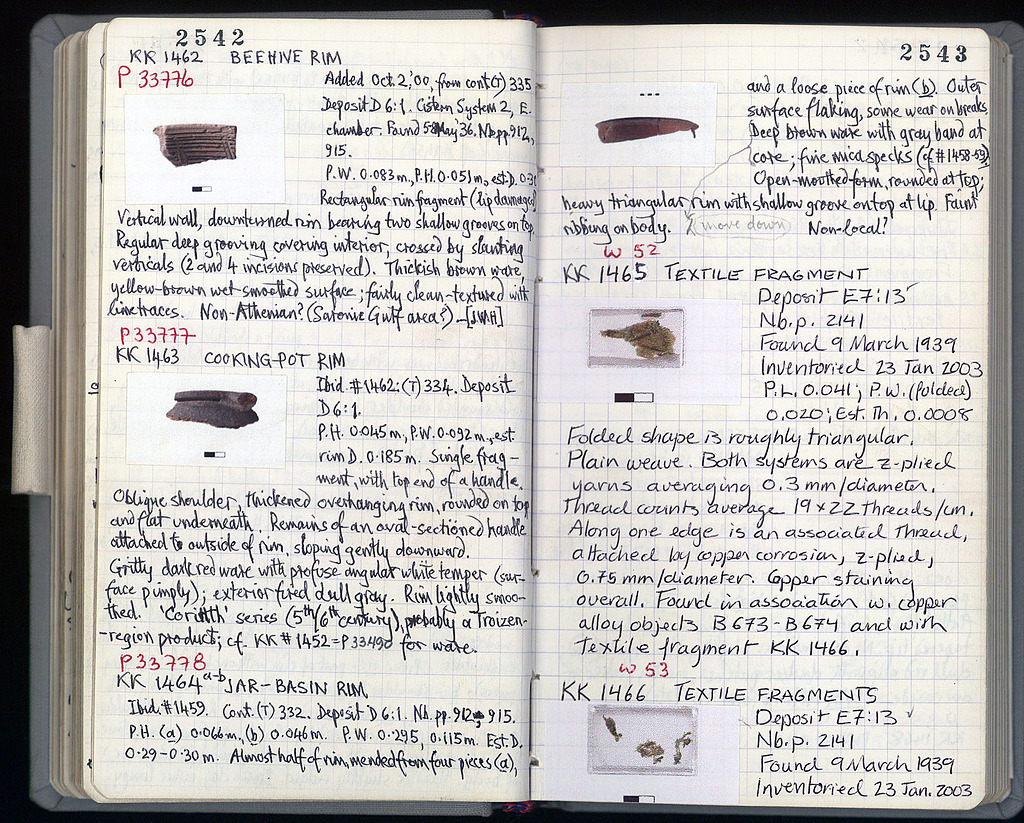 2542
KK 1462 BEEHIVE RIM
P 33776
Added Oct. 2, '00, from cont (T) 335
Deposit D 6:1. Cistern System 2, E.
chamber. Found 5 May '36. Nb.pp. 912,
915.
P.W. 0.083m., P.H. 0.051m., est. D. 0.3
Rectangular rim fragment (lip damaged)
Vertical wall, downturned rim bearing two shallow grooves on top.
Regular deep grooving covering interior, crossed by slanting
verticals (2 and 4 incisions preserved). Thickish brown ware,
yellow-brown wet-smoothed surface; fairly clean-textured with
lime traces. Non-Athenian? (Saronic Gulf area?) –[JWH]
P 33777
KK 1463 COOKING-POT RIM
Ibid. #1462: (T) 334. Deposit
D 6:1.
P.H. 0.045m., P.W. 0.092m., est.
rim D. 0.185m. Single frag-
ment, with top end of a handle.
Oblique shoulder, thickened overhanging rim, rounded on top
and flat underneath. Remains of an oval-sectioned handle
attached to outside of rim, sloping gently downward.
Gritty dark red ware with profuse angular white temper (sur-
face pimply); exterior fired dull gray. Rim lightly smoo-
thed. 'Corinth' series (5th/6th century), probably a Troizen-
-region product; cf. KK # 1452 = P 33490 for ware.
P 33778
KK 1464 a-b JAR-BASIN RIM
Ibid. #1459. Cont. (T) 332. Deposit D 6:1. Nb. pp. 912, 915.
P.H. (a) 0.066m, (b) 0.046m. P.W. 0.295, 0.115m. Est. D.
0.29-0.30m. Almost half of rim, mended from four pieces (a),
2543
and a loose piece of rim (b). Outer
surface flaking, some wear on breaks.
Deep brown ware with gray band at
core; fine mica specks (cf #1458-59)
Open-mouthed form, rounded at top;
heavy triangular rim with shallow groove on top at lip. Faint
ribbing on body. move down Non-local?
W 52
KK 1465 TEXTILE FRAGMENT
Deposit E7:13
Nb. p. 2141
Found 9 March 1939
Inventoried 23 Jan 2003
P.L. 0.041; P.W. (folded)
0.020; Est. Th. 0.0008
Folded shape is roughly triangular.
Plain weave. Both systems are z-plied
yarns averaging 0.3 mm/diameter.
Thread counts average 19 x 22 threads/cm.
Along one edge is an associated thread,
attached by copper corrosion, z-plied,
0.75 mm/diameter. Copper staining
overall. Found in association w. copper
alloy objects B 673 - B 674 and with
Textile fragment KK 1466.
W 53
KK 1466 TEXTILE FRAGMENTS
Deposit E7:13
Nb. p. 2141
Found 9 March 1939
Inventoried 23 Jan. 2003